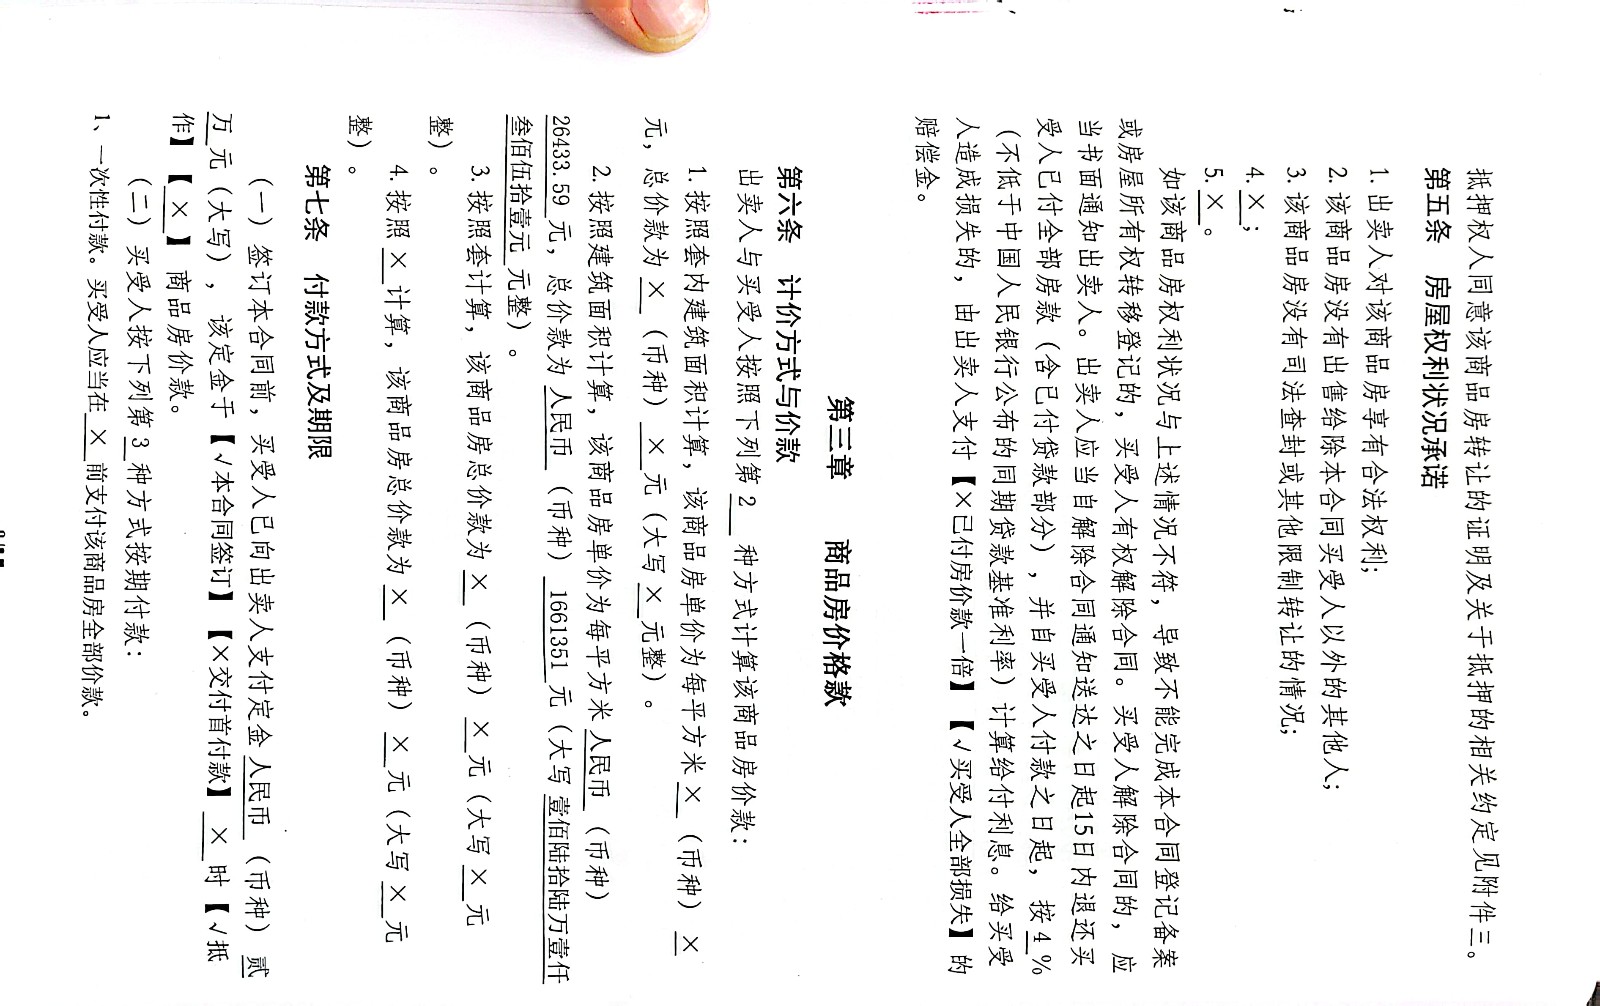 抵押权人同意该商品房转让的证明及关于抵押的相关约定见附件三。
第五条 房屋权利状况承诺
1. 出卖人对该商品房享有合法权利；
2. 该商品房没有出售给除本合同买受人以外的其他人；
3. 该商品房没有司法查封或其他限制转让的情况；
4. ×；
5. ×。
如该商品房权利状况与上述情况不符，导致不能完成本合同登记备案
或房屋所有权转移登记的，买受人有权解除合同。买受人解除合同的，应
当书面通知出卖人。出卖人应当自解除合同通知送达之日起15日内退还买
受人已付全部房款（含已付贷款部分），并自买受人付款之日起，按4%
（不低于中国人民银行公布的同期贷款基准利率）计算给付利息。给买受
人造成损失的，由出卖人支付【×已付房价款一倍】【√买受人全部损失】的
赔偿金。
第三章 商品房价格款
第六条 计价方式与价款
出卖人与买受人按照下列第 2 种方式计算该商品房价款：
1. 按照套内建筑面积计算，该商品房单价为每平方米 × （币种） ×
元，总价款为 × （币种） × 元（大写 × 元整）。
2. 按照建筑面积计算，该商品房单价为每平方米 人民币 （币种）
26433.59 元，总价款为 人民币 （币种） 1661351 元（大写 壹佰陆拾陆万壹仟
叁佰伍拾壹元 元整）。
3. 按照套计算，该商品房总价款为 × （币种） × 元（大写 × 元
整）。
4. 按照 × 计算，该商品房总价款为 × （币种） × 元（大写 × 元
整）。
第七条 付款方式及期限
（一）签订本合同前，买受人已向出卖人支付定金 人民币 （币种） 贰
万 元（大写），该定金于【√本合同签订】【×交付首付款】 × 时【√抵
作】【 × 】商品房价款。
（二）买受人按下列第 3 种方式按期付款：
1、一次性付款。买受人应当在 × 前支付该商品房全部价款。